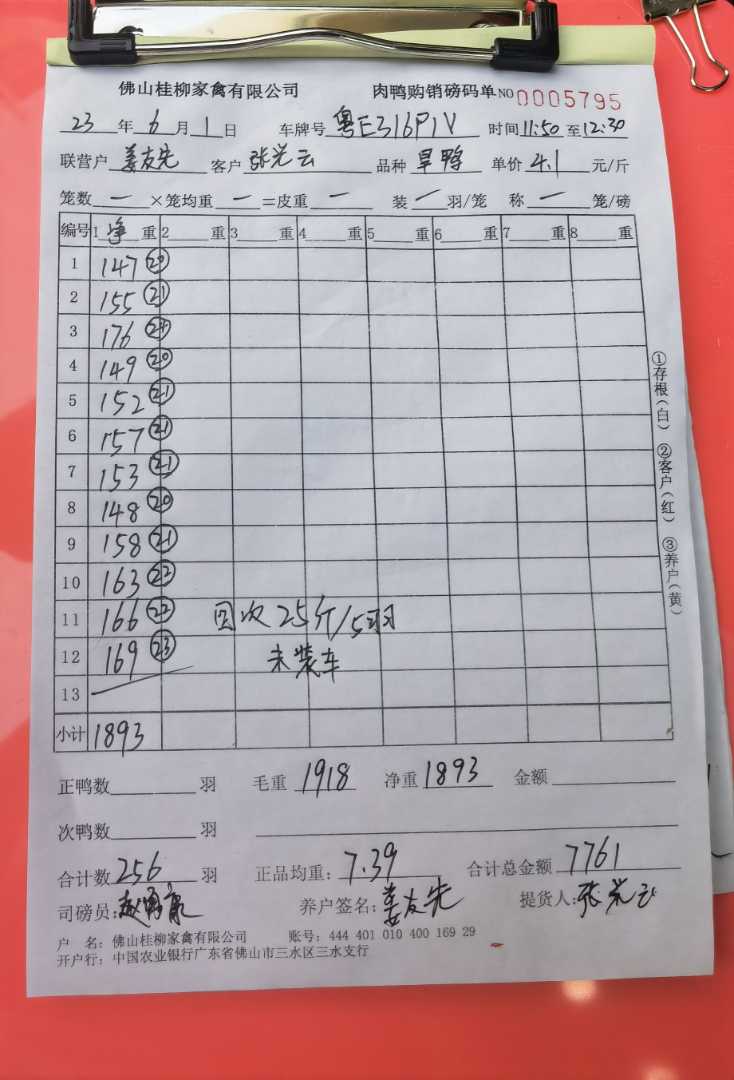 佛山桂柳家禽有限公司 肉鸭购销磅码单 NO 0005795
23 年 6 月 1 日 车牌号 粤E316P1V 时间 11:50 至 12:30
联营户 姜友先 客户 张光云 品种 旱鸭 单价 4.1 元/斤
笼数 一 ×笼均重 一 =皮重 一 装 一 羽/笼 称 一 笼/磅
编号 1 净 重 2 重 3 重 4 重 5 重 6 重 7 重 8 重
1 147 ⑳
2 155 ㉑
3 176
4 149 ⑳
5 152 ㉑
6 157 ㉑
7 153 ㉑
8 148 ⑳
9 158 ㉑
10 163 ㉒
11 166 ㉒ 次 25斤/5羽
12 169 ㉓ 未装车
13
小计 1893
正鸭数 羽 毛重 1918 净重 1893 金额
次鸭数 羽
合计数 256 羽 正品均重: 7.39 合计总金额 7761
司磅员: 养户签名: 姜友先 提货人: 张光云
户 名: 佛山桂柳家禽有限公司 账号: 444 401 010 400 169 29
开户行: 中国农业银行广东省佛山市三水区三水支行
①存根(白) ②客户(红) ③养户(黄)